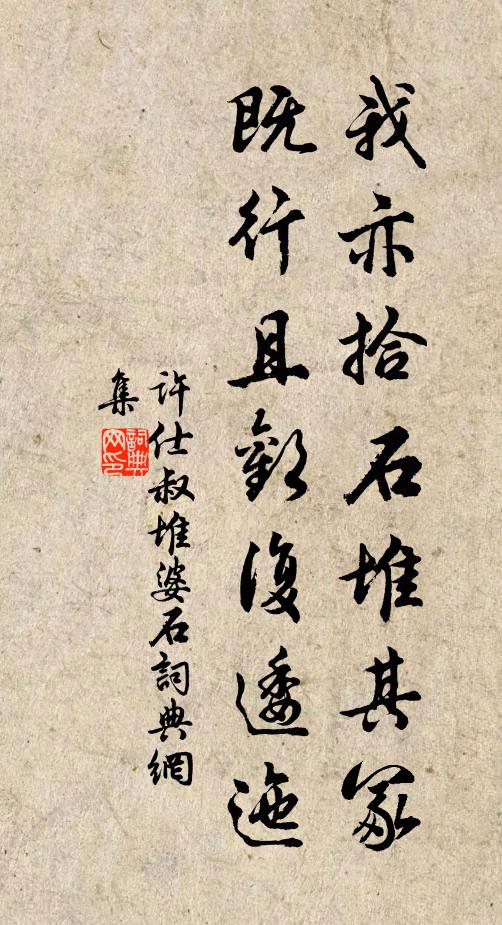 我亦拾石堆其冢
既行且歎復逶迤
許仕叔堆婆石詞典網
集
詞典
网印